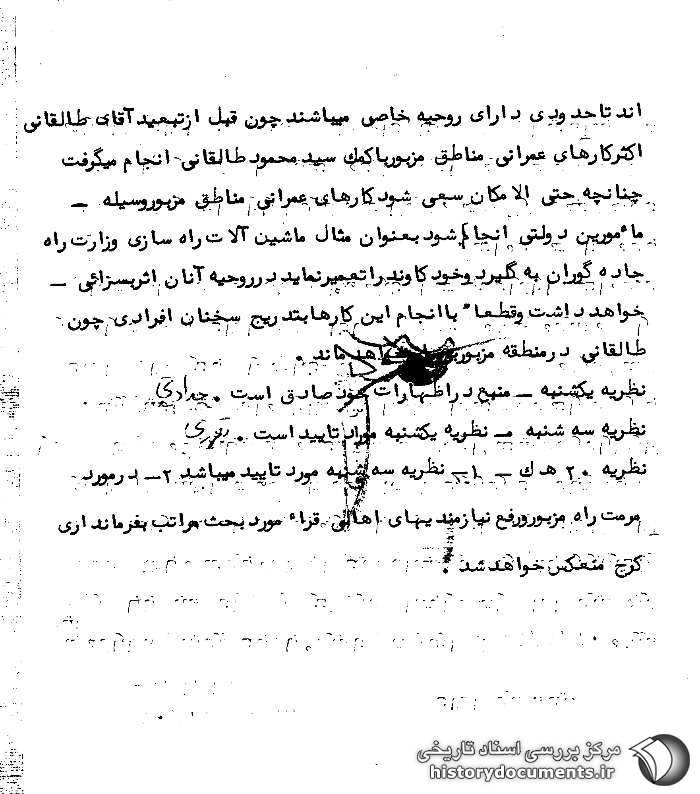 اند تا حدودی دارای روحیه خاصی میباشند چون قبل از تبعید آقای طالقانی
اکثر کارهای عمرانی مناطق مزبور با کمک سید محمود طالقانی انجام میگرفت
چنانچه حتی الامکان سعی شود کارهای عمرانی مناطق مزبور وسیله -
مأمورین دولتی انجام شود بعنوان مثال ماشین آلات راه سازی وزارت راه
جاده گوران به گلیرد و خود کاوند را تعمیر نماید در روحیه آنان اثر بسزائی -
خواهد داشت و قطعا" با انجام این کارها بتدریج سخنان افرادی چون
طالقانی در منطقه مزبور خواهد ماند .
نظریه یکشنبه - منبع در اظهارات خود صادق است .
نظریه سه شنبه - نظریه یکشنبه مورد تایید است .
نظریه ۲۰ ه‍ ک - ۱- نظریه سه شنبه مورد تایید میباشد ۲- در مورد
مرمت راه مزبور و رفع نیازمندیهای اهالی قراء مورد بحث مراتب بفرمانداری
کرج منعکس خواهد شد .
مرکز بررسی اسناد تاریخی
historydocuments.ir